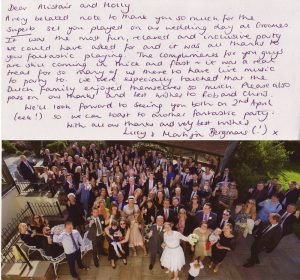 Dear Alistair and Molly
A very belated note to thank you so much for the
superb set you played on our wedding day at Croomes.
It was the most fun, relaxed and inclusive party
we could have asked for and it was all thanks to
your fantastic playing. The compliments for you guys
are still coming thick and fast - it was a real
treat for so many of us there to have live music
to party to. We were especially touched that the
Dutch family enjoyed themselves so much. Please also
pass on our thanks and best wishes to Rob and Chris.
We'll look forward to seeing you both on 2nd April
(eek!) so we can toast to another fantastic party.
With all our thanks and very best wishes
Lucy & Bergmans (!) x